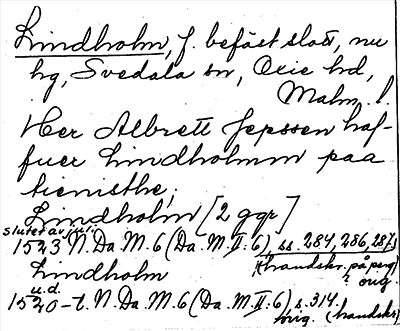 Lindholm, f. befäst slott, nu
hg, Svedala sn, Oxie hd,
Malm. l.
Her Albrett Jepssen haf-
fuer Lindholmm paa
tienisthe;
Lindholm [2 ggr]
slutet av juli
1523 N. Da. M. 6 (Da. M. II: 6) ss. 284, 286, 287,
(handskr. på perg
? orig.
Lindholm
u. d.
1520-t. N. Da. M. 6 (Da. M. II: 6) s. 314.
orig. (handskr)